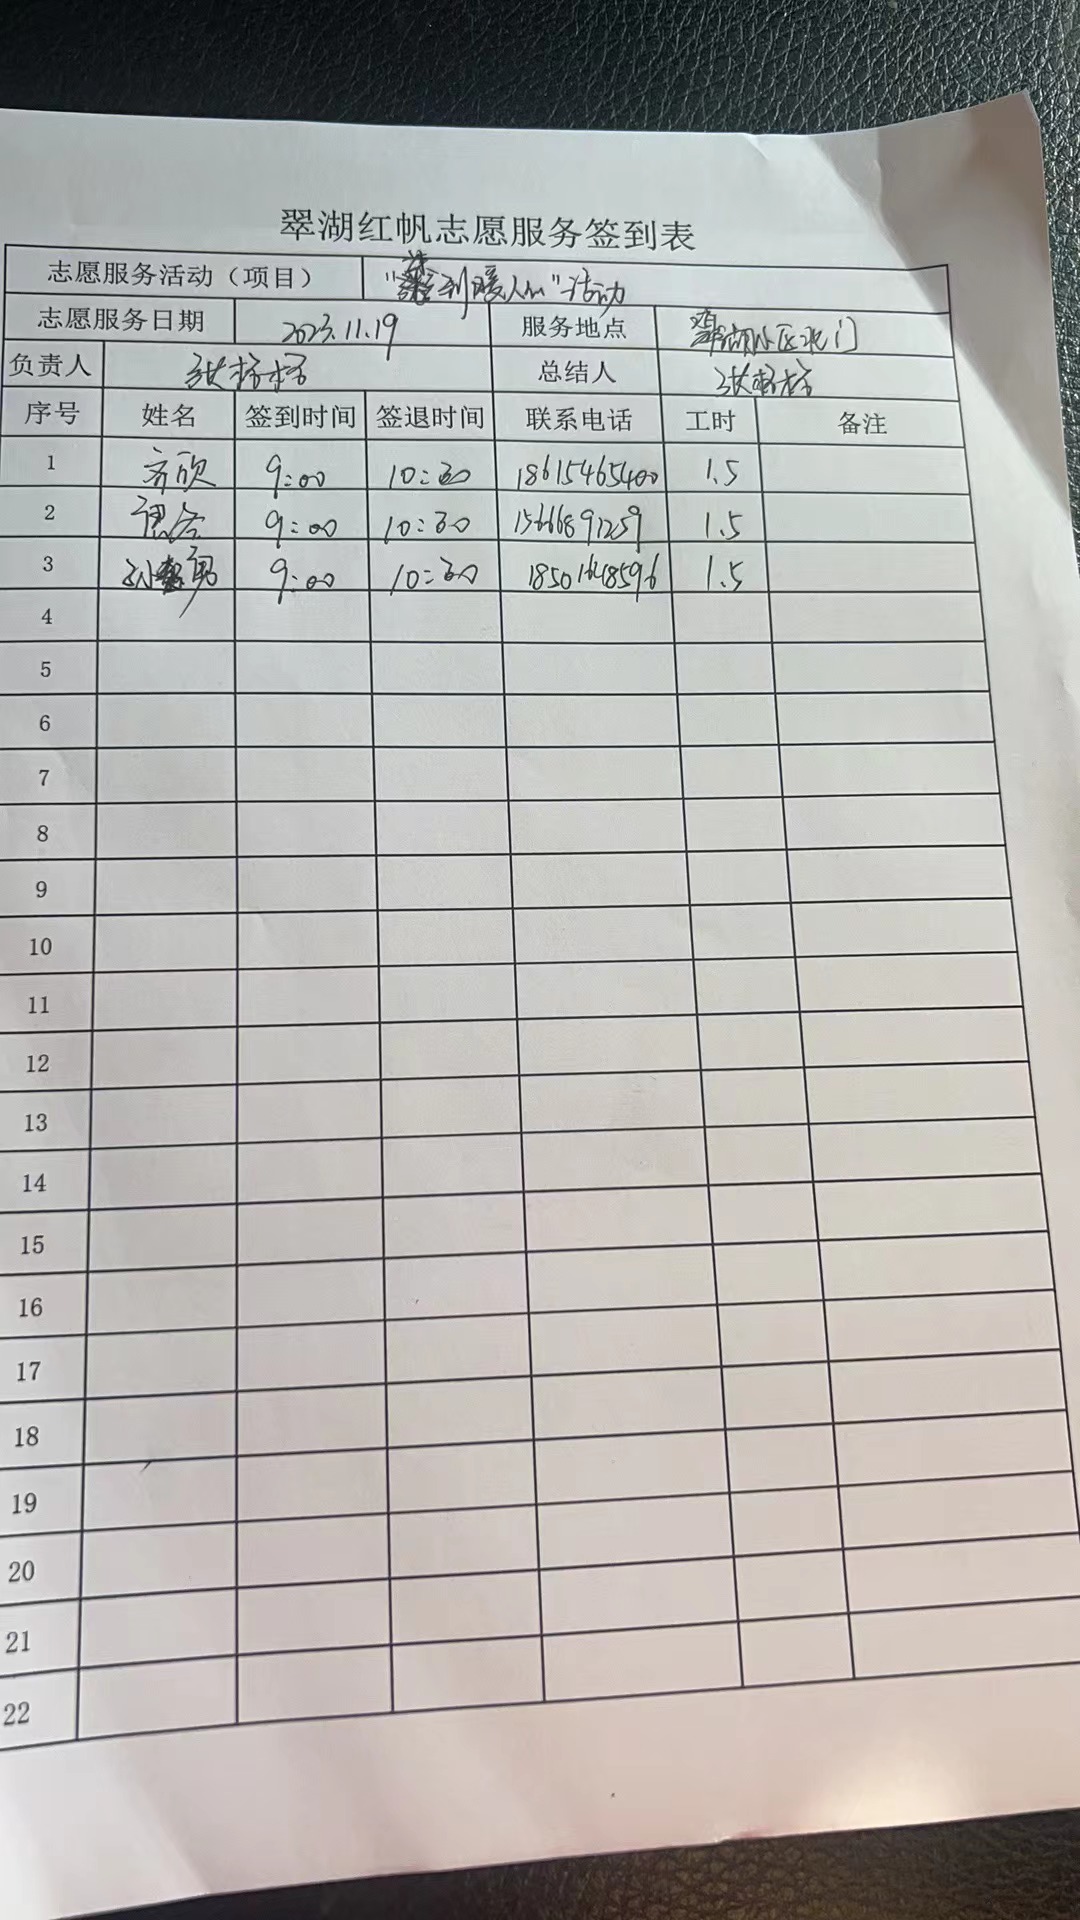 翠湖红帆志愿服务签到表
志愿服务活动（项目） 到暖人心"活动
志愿服务日期 2023.11.19 服务地点 翠湖小区北门
负责人 张杨杨 总结人 张杨杨
序号 姓名 签到时间 签退时间 联系电话 工时 备注
1 齐欣 9:00 10:30 18615465400 1.5
2 9:00 10:30 15666891259 1.5
3 孙 男 9:00 10:30 18501648596 1.5
4
5
6
7
8
9
10
11
12
13
14
15
16
17
18
19
20
21
22